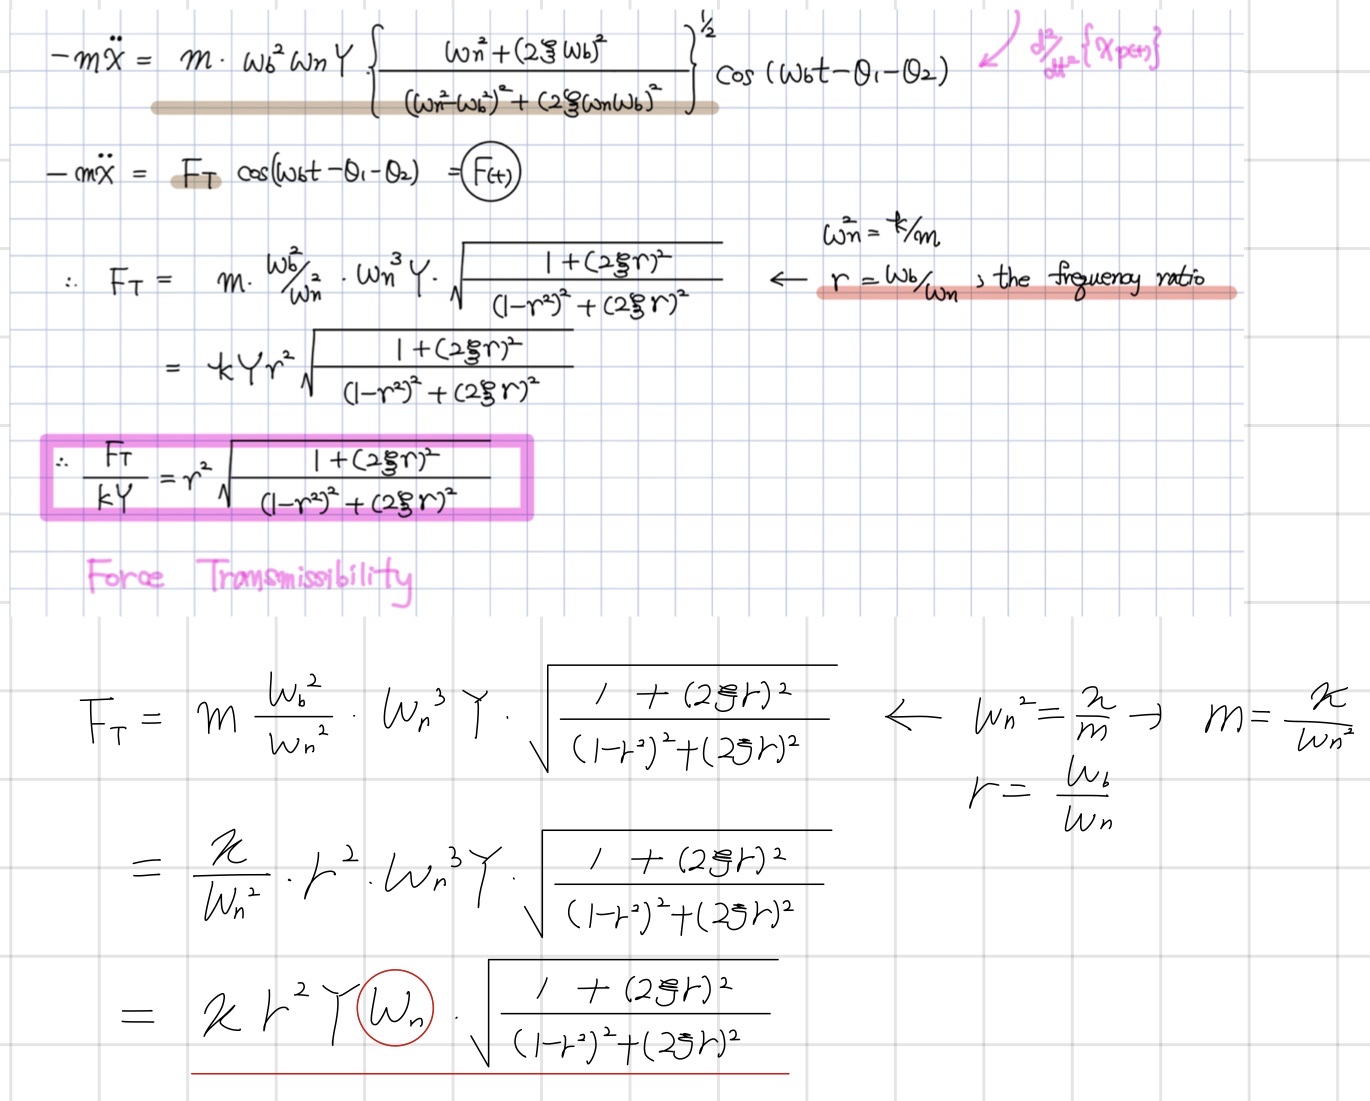 -mẍ = m · ω_b² ω_n Y · { (ω_n² + (2ξω_b)²) / ((ω_n² - ω_b²)² + (2ξω_nω_b)²) }^½ cos(ω_bt - θ₁ - θ₂) ↙ d²/dt² {X_p(t)}
-mẍ = F_T cos(ω_bt - θ₁ - θ₂) = F(t)
ω_n² = k/m
∴ F_T = m · ω_b²/ω_n² · ω_n³ Y · √( (1 + (2ξr)²) / ((1-r²)² + (2ξr)²) ) ← r = ω_b/ω_n ; the frequency ratio
= kYr² √( (1 + (2ξr)²) / ((1-r²)² + (2ξr)²) )
∴ F_T / kY = r² √( (1 + (2ξr)²) / ((1-r²)² + (2ξr)²) )
Force Transmissibility
F_T = m ω_b²/ω_n² · ω_n³ Y · √( (1 + (2ξr)²) / ((1-r²)² + (2ξr)²) ) ← ω_n² = k/m → m = k/ω_n²
r = ω_b/ω_n
= k/ω_n² · r² · ω_n³ Y · √( (1 + (2ξr)²) / ((1-r²)² + (2ξr)²) )
= k r² Y ω_n · √( (1 + (2ξr)²) / ((1-r²)² + (2ξr)²) )